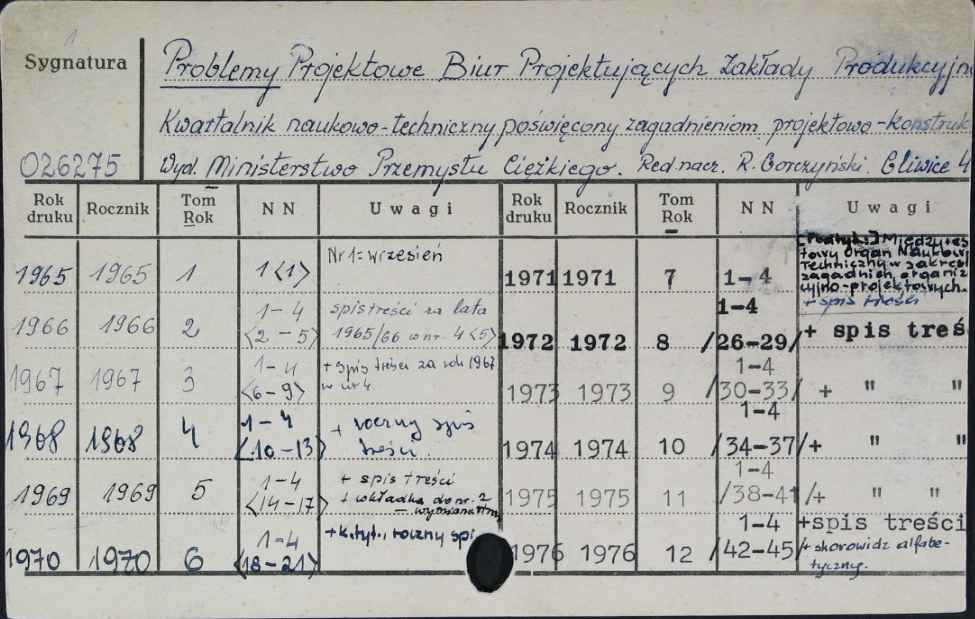 Sygnatura
Problemy Projektowe Biur Projektujących Zakłady Produkcyjn
Kwartalnik naukowo-techniczny poświęcony zagadnieniom projektowo-konstruk
026275 Wyd. Ministerstwo Przemysłu Ciężkiego. Red. nacz. R. Gorczyński. Gliwice 4
Rok druku Rocznik Tom Rok N N Uwagi Rok druku Rocznik Tom Rok N N Uwagi
1965 1965 1 1<1> Nr 1: wrzesień
1966 1966 2 1-4 <2-5> spis treści za lata 1965/66 w nr. 4 <5>
1967 1967 3 1-4 <6-9> + spis treści za rok 1967 w nr 4
1968 1968 4 1-4 <10-13> + roczny spis treści
1969 1969 5 1-4 <14-17> + spis treści + wkładka do nr. 2 -
1970 1970 6 1-4 <18-21> + k.tyt., roczny spi
1971 1971 7 1-4 [Podtyt.:] Międzyres
towy organ Naukowo
Techniczny w zakresi
zagadnień organiz
cyjno-projektowych.
+ spis treści
1972 1972 8 1-4 /26-29/ + spis treś
1973 1973 9 1-4 /30-33/ + " "
1974 1974 10 1-4 /34-37/ + " "
1975 1975 11 1-4 /38-41/ + " "
1976 1976 12 1-4 /42-45/ +spis treści
+ skorowidz alfabe-
tyczny.